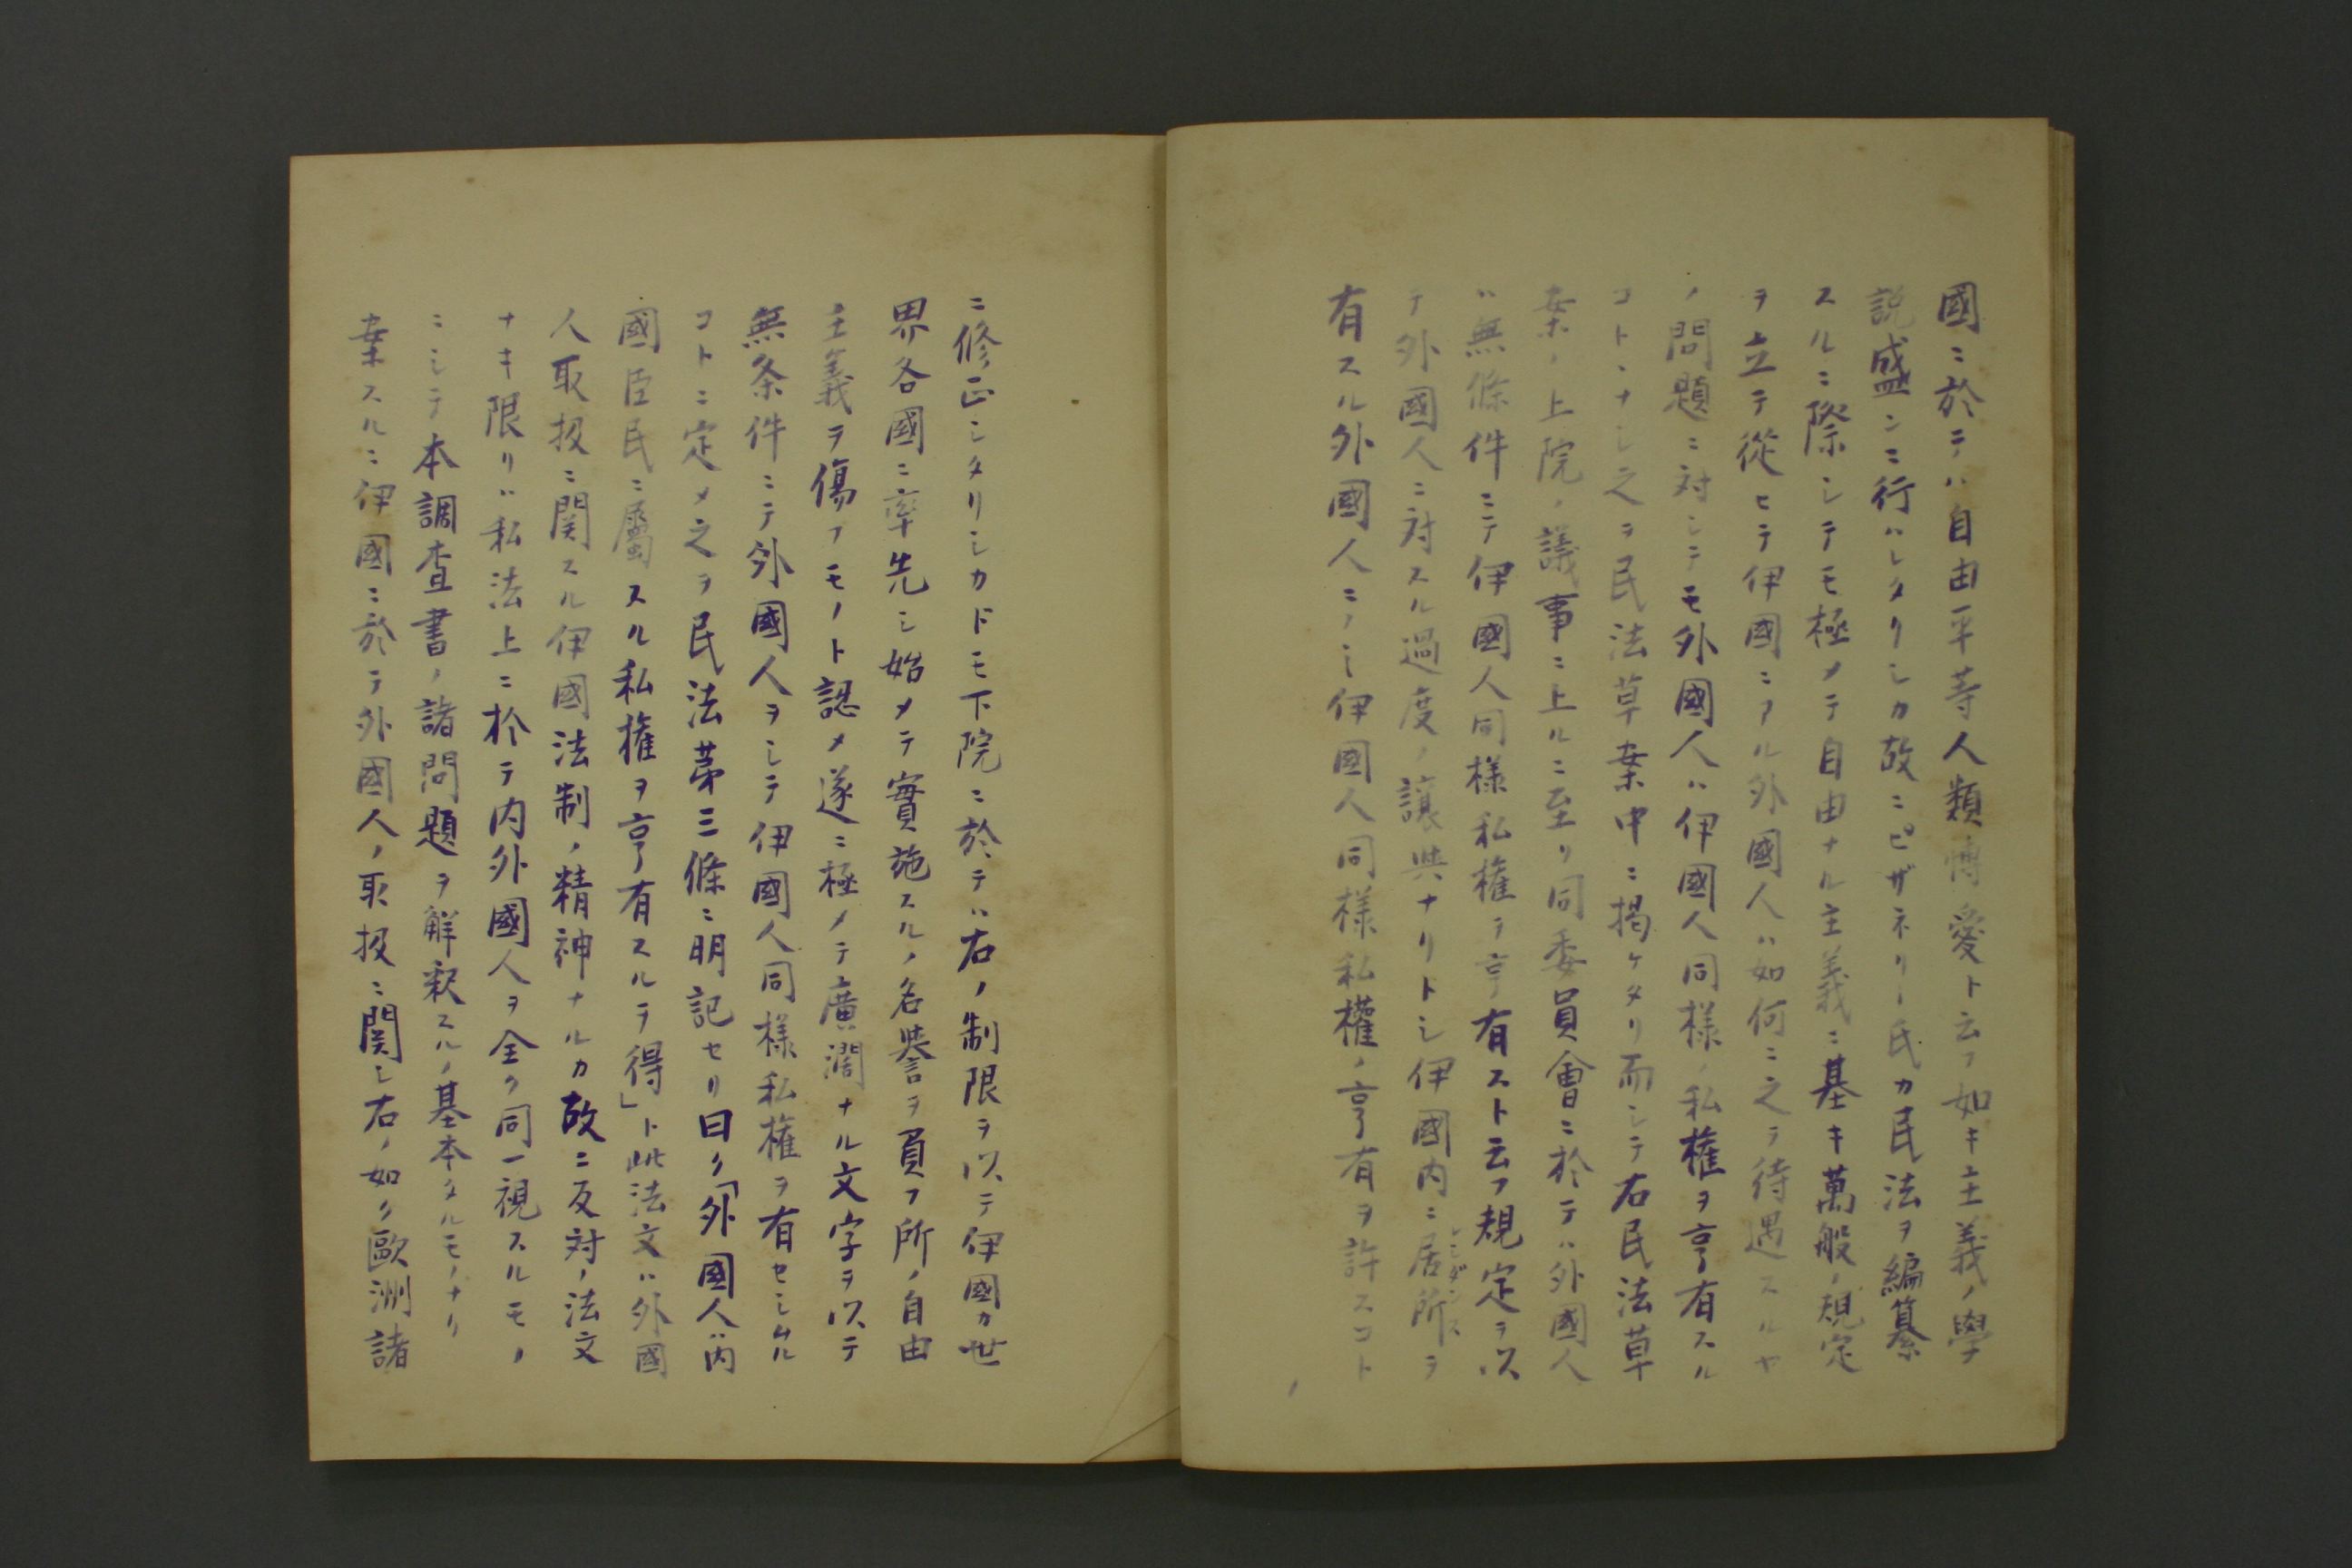 國ニ於テハ自由平等人類博愛ト云フ如キ主義ノ學
説盛ンニ行ハレタリシカ故ニピザネリー氏カ民法ヲ編纂
スルニ際シテモ極メテ自由ナル主義ニ基キ萬般ノ規定
ヲ立テ從ヒテ伊國ニアル外國人ハ如何ニ之ヲ待遇スルヤ
ノ問題ニ対シテモ外國人ハ伊國人同様ノ私権ヲ享有スル
コトヽナシ之ヲ民法草案中ニ掲ケタリ而シテ右民法草
案ノ上院ノ議事ニ上ルニ至リ同委員會ニ於テハ外國人
ハ無條件ニテ伊國人同様私権ヲ享有スト云フ規定ヲ以
テ外國人ニ対スル過度ノ讓與ナリトシ伊國内ニ居所ヲ
レシダンス
有スル外國人ニノミ伊國人同様私權ノ享有ヲ許スコト
ニ修正シタリシカドモ下院ニ於テハ右ノ制限ヲ以テ伊國カ世
界各國ニ率先シ始メテ實施スルノ名誉ヲ負フ所ノ自由
主義ヲ傷フモノト認メ遂ニ極メテ廣濶ナル文字ヲ以テ
無条件ニテ外國人ヲシテ伊國人同様私権ヲ有セシムル
コトニ定メ之ヲ民法第三條ニ明記セリ曰ク「外國人ハ内
國臣民ニ屬スル私権ヲ享有スルヲ得」ト此法文ハ外國
人取扱ニ関スル伊國法制ノ精神ナルカ故ニ反対ノ法文
ナキ限リハ私法上ニ於テ内外國人ヲ全ク同一視スルモノ
ニシテ本調査書ノ諸問題ヲ解釈スルノ基本タルモノナリ
案スルニ伊國ニ於テ外國人ノ取扱ニ関シ右ノ如ク歐洲諸